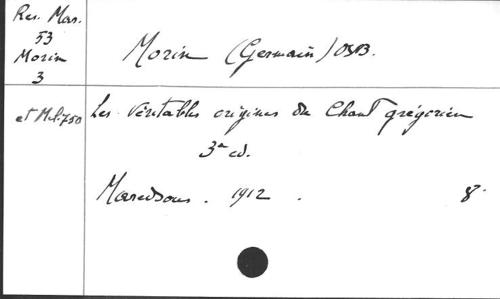 Res. Mas.
53
Morin
3
Morin (Germain) OSB.
et Mel. 750
Les Véritables origines du Chant grégorien
3e ed.
Maredsous . 1912 . 8°